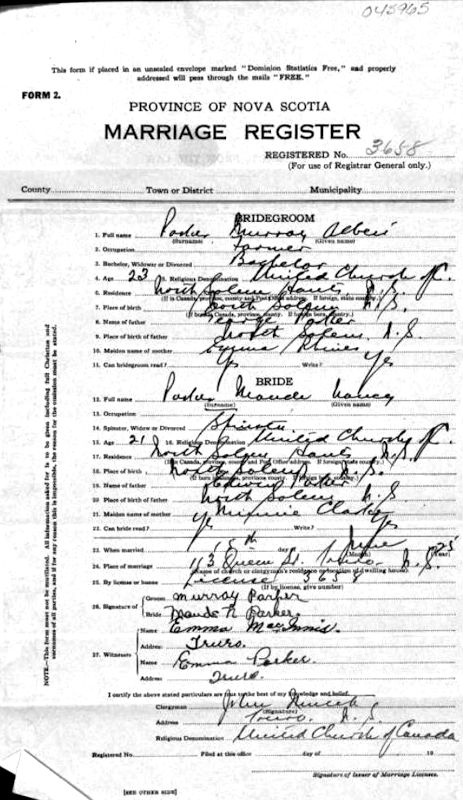 043965
This form if placed in an unsealed envelope marked "Dominion Statistics Free," and properly
addressed will pass through the mails "FREE."
FORM 2.
PROVINCE OF NOVA SCOTIA
MARRIAGE REGISTER
REGISTERED No. 3658
(For use of Registrar General only.)
County Town or District Municipality
BRIDEGROOM
1. Full name Parker Murray Albert
(Surname) (Given name)
2. Occupation Farmer
3. Bachelor, Widower or Divorced Bachelor
4. Age 23 5. Religious Denomination United Church of C.
6. Residence North Salem Hants N.S.
(If in Canada, province, county and Post Office address. If foreign, state country.)
7. Place of birth North Salem N.S.
(If born in Canada, province, county. If foreign born, country.)
8. Name of father George Parker
9. Place of birth of father North Salem, N.S.
10. Maiden name of mother Emma
11. Can bridegroom read? Yes Write? Yes
BRIDE
12. Full name Parker Maude Nancy
(Surname) (Given name)
13. Occupation
14. Spinster, Widow or Divorced Spinster
15. Age 21 16. Religious Denomination United Church of C.
17. Residence North Salem Hants N.S.
(If in Canada, province, county and Post Office address. If foreign state country.)
18. Place of birth North Salem N.S.
(If born in Canada, province, county. If foreign born, country.)
19. Name of father Parker
20. Place of birth of father North Salem N.S.
21. Maiden name of mother Minnie Clarke
22. Can bride read? Yes Write? Yes
23. When married June
(Month) (Year)
24. Place of marriage 43 Queen St. Truro. N.S.
(Name of church or clergyman's residence or location of dwelling house)
25. By license or banns License 3658
(If by license, give number)
26. Signature of
Groom Murray Parker
Bride Maude N Parker.
27. Witnesses
Name Emma MacInnis.
Address Truro.
Name Emma Parker.
Address Truro.
I certify the above stated particulars are true to the best of my knowledge and belief.
Clergyman John
(Signature)
Address Truro. N.S.
Religious Denomination United Church of Canada
Registered No. Filed at this office day of 19
Signature of Issuer of Marriage Licenses.
[SEE OTHER SIDE]
NOTE.—This form must not be mutilated. All information asked for is to be given including full Christian and
surnames of all parties, and if for any reason this is impossible, the reason for the omission must be stated.